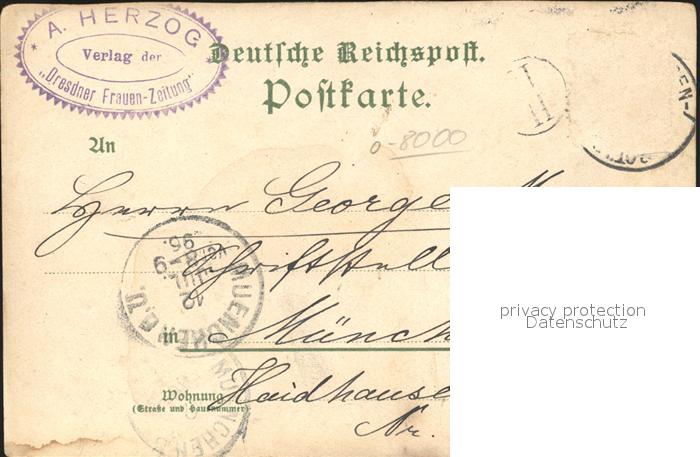 * A. HERZOG *
Verlag der
„Dresdner Frauen-Zeitung"
Deutsche Reichspost.
Postkarte.
0-8000
An
Herrn George
Schriftstell
in Münch
Wohnung Haidhause
(Straße und Hausnummer)
Nr.
MUENCHEN B.V.
12
JUL
8-9
96.
MÜNCHEN
privacy protection
Datenschutz